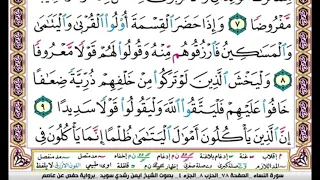 مَّفْرُوضًا ٧ وَإِذَا حَضَرَ ٱلْقِسْمَةَ أُو۟لُوا۟ ٱلْقُرْبَىٰ وَٱلْيَتَـٰمَىٰ
وَٱلْمَسَـٰكِينُ فَٱرْزُقُوهُم مِّنْهُ وَقُولُوا۟ لَهُمْ قَوْلًا مَّعْرُوفًا ٨
وَلْيَخْشَ ٱلَّذِينَ لَوْ تَرَكُوا۟ مِنْ خَلْفِهِمْ ذُرِّيَّةً ضِعَـٰفًا
خَافُوا۟ عَلَيْهِمْ فَلْيَتَّقُوا۟ ٱللَّهَ وَلْيَقُولُوا۟ قَوْلًا سَدِيدًا ٩
إِنَّ ٱلَّذِينَ يَأْكُلُونَ أَمْوَٰلَ ٱلْيَتَـٰمَىٰ ظُلْمًا إِنَّمَا يَأْكُلُونَ فِى
سورة النساء الصفحة ٧٨ الحزب ٨ الجزء ٤ بصوت الشيخ أيمن رشدي سويد - برواية حفص عن عاصم